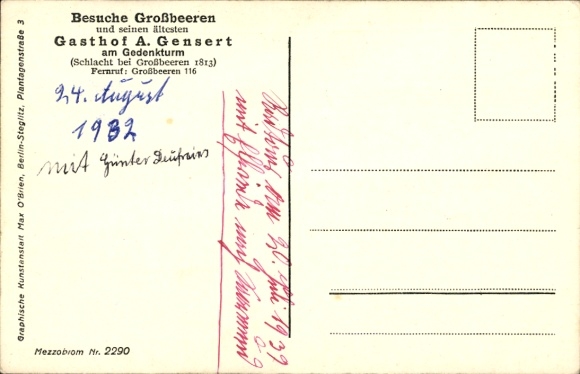 Besuche Großbeeren
und seinen ältesten
Gasthof A. Gensert
am Gedenkturm
(Schlacht bei Großbeeren 1813)
Fernruf: Großbeeren 116
24. August
1932
mit Günter Deufrains
am 30. Juni 1939
mit nach
Graphische Kunstanstalt Max O'Brien, Berlin-Steglitz, Plantagenstraße 3
Mezzobrom Nr. 2290